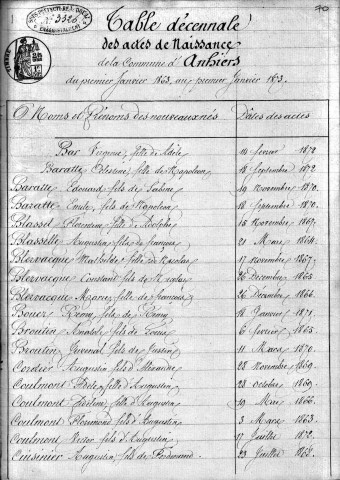 70
N° 3526
Table décennale
des actes de Naissance
de la Commune d'Anhiers
du premier Janvier 1863, au premier Janvier 1873.
Noms et Prénoms des nouveaux nés Dates des actes
Bar Virginie, fille de Adèle 14 février 1872
Baratte Célestine, fille de Napoléon 18 Septembre 1872
Baratte Edouard, fils de Sabine 19 Novembre 1870.
Baratte Emile, fils de Napoléon 18 Septembre 1870.
Blassel fils de Adolphe 15 Novembre 1869.
Blasselle Augustin, fils de françois 21 Mars 1864.
Blervacque Mathilde, fille de Nicolas 17 Novembre 1867.
Blervacque Constant fils de Nicolas 26 Décembre 1865
Blervacque fille de françois 26 Décembre 1866.
Bouez Rémy, fils de Rémy 18 Janvier 1871.
Broutin Anatole fils de 6 février 1865
Broutin Juvénal fils de Justin 11 Mars 1870.
Cordier Augustin fils d'Alexandre 28 Novembre 1869.
Coulmont Adèle, fille d'Augustin 23 Octobre 1869.
Coulmont fille d'Augustin 19 Mai 1866.
Coulmont Florimond fils d'Augustin 3 Mars 1863.
Coulmont Victor fils d'Augustin 17 Juillet 1872.
Cuisinier Augustin fils de Ferdinand 23 Juillet